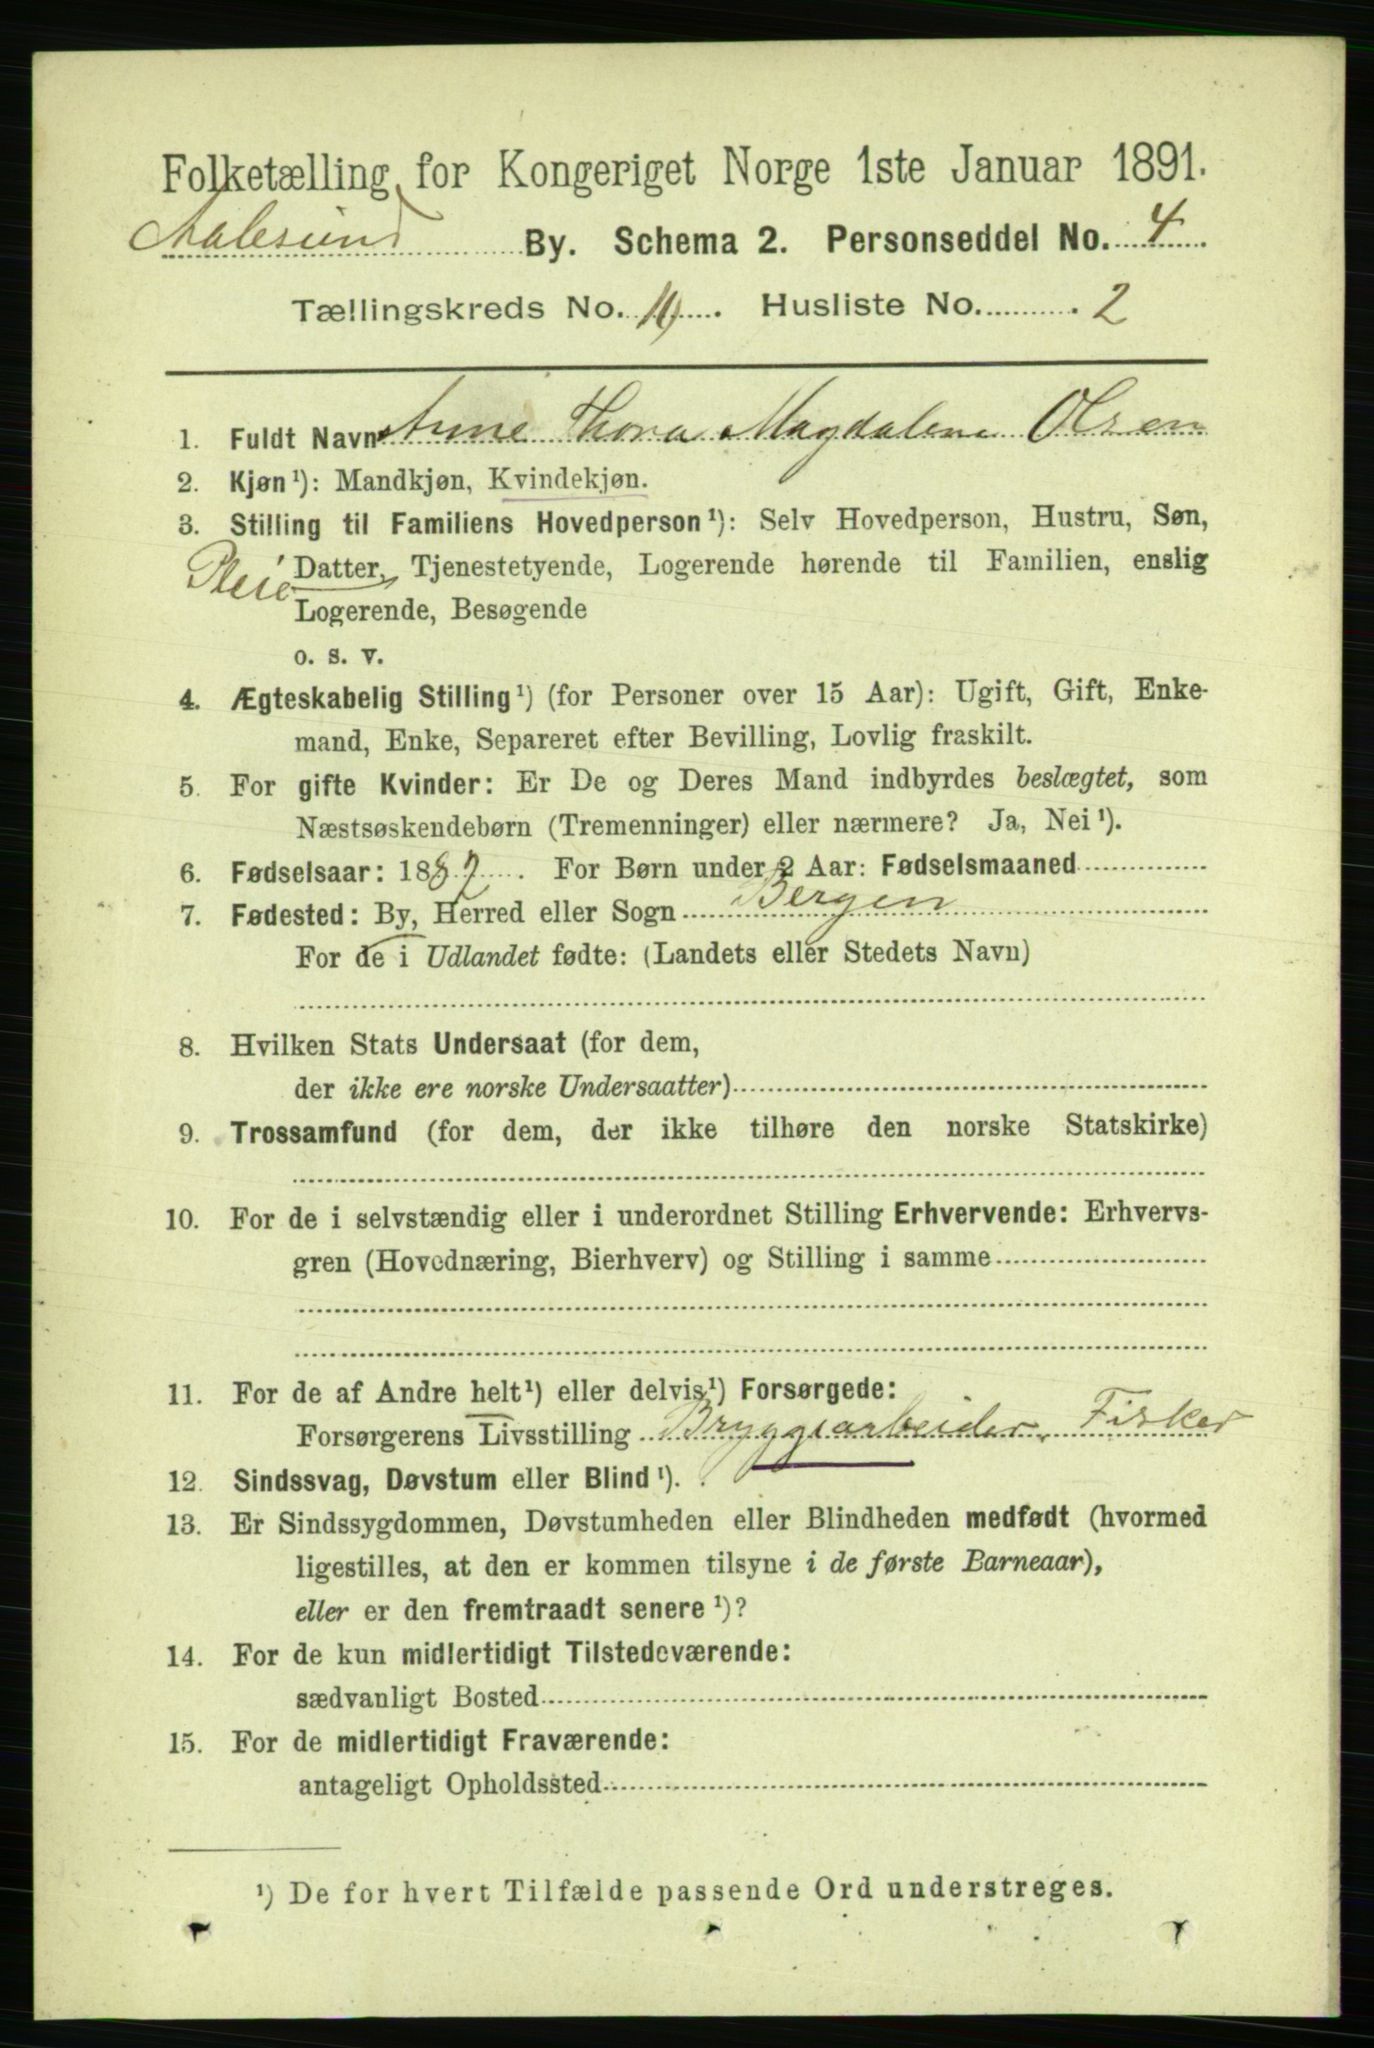 Folketælling for Kongeriget Norge 1ste Januar 1891.
Aalesund By. Schema 2. Personseddel No. 4
Tællingskreds No. 10. Husliste No. 2
1. Fuldt Navn Anne Thora Magdalene Olsen
2. Kjøn¹): Mandkjøn, Kvindekjøn.
3. Stilling til Familiens Hovedperson¹): Selv Hovedperson, Hustru, Søn,
Pleie Datter, Tjenestetyende, Logerende hørende til Familien, enslig
Logerende, Besøgende
o. s. v.
4. Ægteskabelig Stilling¹) (for Personer over 15 Aar): Ugift, Gift, Enke-
mand, Enke, Separeret efter Bevilling, Lovlig fraskilt.
5. For gifte Kvinder: Er De og Deres Mand indbyrdes beslægtet, som
Næstsøskendebørn (Tremenninger) eller nærmere? Ja, Nei¹).
6. Fødselsaar: 1887. For Børn under 2 Aar: Fødselsmaaned
7. Fødested: By, Herred eller Sogn Bergen
For de i Udlandet fødte: (Landets eller Stedets Navn)
8. Hvilken Stats Undersaat (for dem,
der ikke ere norske Undersaatter)
9. Trossamfund (for dem, der ikke tilhøre den norske Statskirke)
10. For de i selvstændig eller i underordnet Stilling Erhvervende: Erhvervs-
gren (Hovednæring, Bierhverv) og Stilling i samme
11. For de af Andre helt¹) eller delvis¹) Forsørgede:
Forsørgerens Livsstilling Bryggearbeider, Fisker
12. Sindssvag, Døvstum eller Blind¹).
13. Er Sindssygdommen, Døvstumheden eller Blindheden medfødt (hvormed
ligestilles, at den er kommen tilsyne i de første Barneaar),
eller er den fremtraadt senere¹)?
14. For de kun midlertidigt Tilstedeværende:
sædvanligt Bosted
15. For de midlertidigt Fraværende:
antageligt Opholdssted
¹) De for hvert Tilfælde passende Ord understreges.